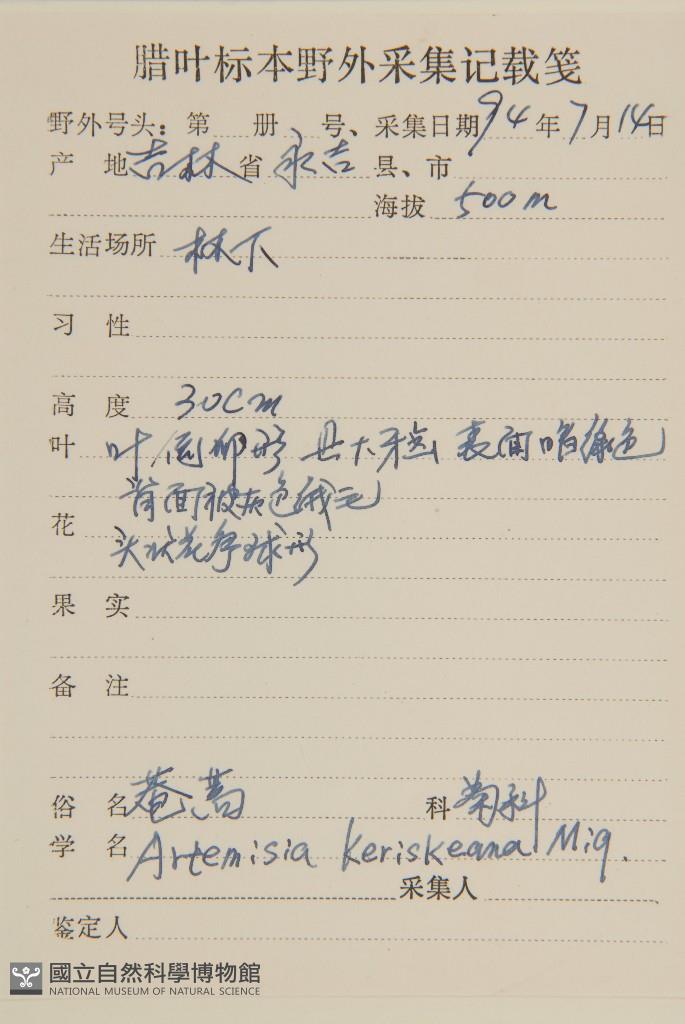 腊叶标本野外采集记载笺
野外号头：第 册 号、采集日期94年7月14日
产 地 吉林 省 永吉 县、市
海拔 500m
生活场所 林下
习 性
高 度 30cm
叶 叶倒卵形 具大牙齿 表面暗绿色
背面被灰色绒毛
花 头状花序球形
果 实
备 注
俗 名 菴蒿 科 菊科
学 名 Artemisia keriskeana Miq.
采集人
鉴定人
國立自然科學博物館
NATIONAL MUSEUM OF NATURAL SCIENCE